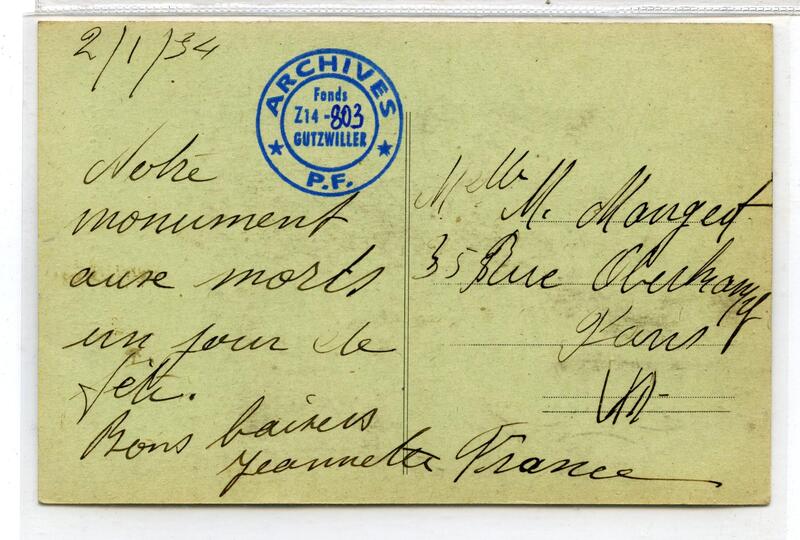 2/1/34
ARCHIVES
Fonds
Z14-803
GUTZWILLER
P.F.
Notre
monument
aux morts
un jour de
fête.
Bons baisers
Jeannette
Melle M. Mauget
35 Rue Oberkampf
Paris
France